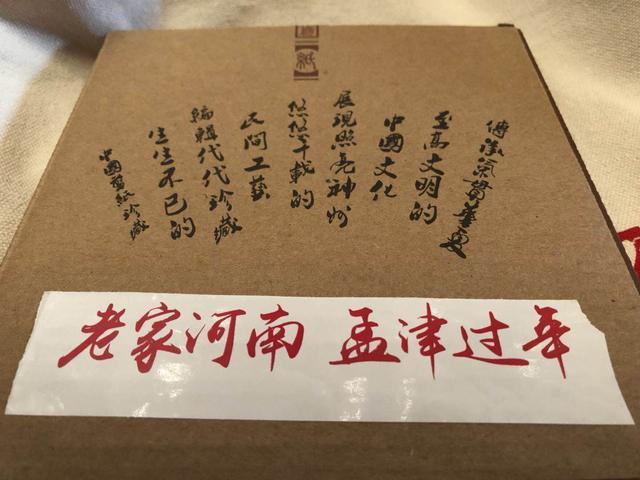 紙
傳 氣貫華夏
至高文明的
中國文化
展現照亮神州
悠悠千載的
民間工藝
編輯代代珍藏
生生不已的
中國剪紙珍藏
老家河南 孟津过年